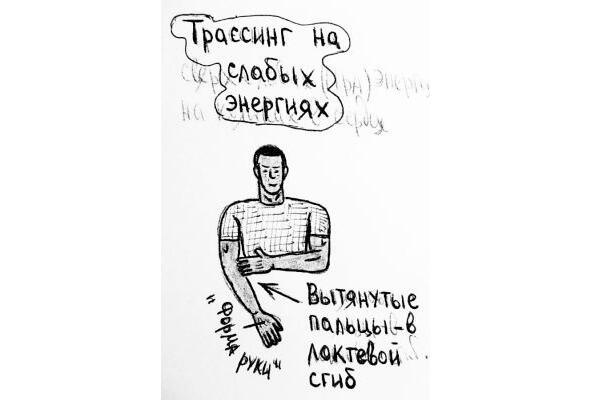 Трассинг на
слабых
энергиях
Вытянутые
пальцы-в
локтевой
сгиб
"форма руки"